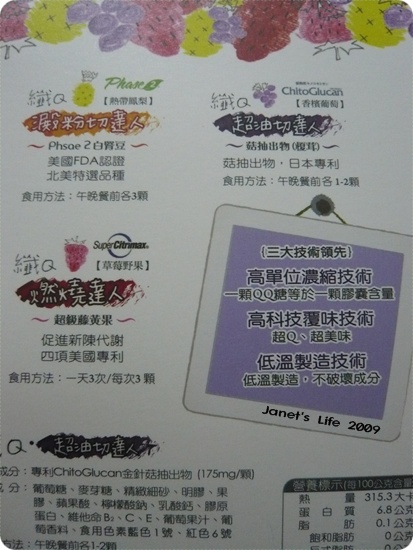 纖Q Phase 2
【熱帶鳳梨】
澱粉切達人
~ Phsae 2白質豆 ~
美國FDA認證
北美特選品種
食用方法：午晚餐前各3顆
纖Q ChitoGlucan
【香檳葡萄】
超油切達人
~菇抽出物(複茸)~
菇抽出物，日本專利
食用方法：午晚餐前各 1-2顆
纖Q SuperCitrimax
【草莓野果】
燃燒達人
~ 超級藤黃果 ~
促進新陳代謝
四項美國專利
食用方法：一天3次/每次3 顆
{三大技術領先}
高單位濃縮技術
一顆QQ糖等於一顆膠囊含量
高科技覆味技術
超Q、超美味
低溫製造技術
低溫製造，不破壞成分
Janet's Life 2009
Q 超油切達人
成分：專利ChitoGlucan金針菇抽出物 (175mg/顆)
成 分：葡萄糖、麥芽糖、精緻細砂、明膠、果
膠、蘋果酸、檸檬酸鈉、乳酸鈣、膠原
蛋白、維他命B、C、E、葡萄果汁、葡
萄香料、食用色素藍色 1 號、紅色 6 號
午晚餐前各1-2顆
營養標示(每100公克含量
熱 量 315.3大卡
蛋 白 質 6.8公克
脂 肪 0.1公克
飽和脂肪 0公克